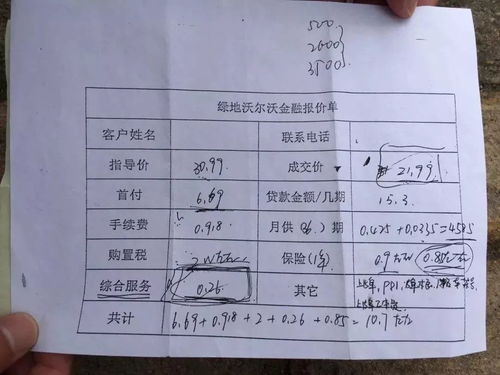 500
2000
3500
绿地沃尔沃金融报价单
客户姓名 联系电话
指导价 30.99 成交价 21.99
首付 6.69 贷款金额/几期 15.3
手续费 0.918 月供(36)期 0.425+0.0335=4585
购置税 2万左右 保险(1年) 0.9左右 0.85左右
综合服务 0.26 其它 上牌,PPI,
共计 6.69+0.918+2+0.26+0.85=10.7左右